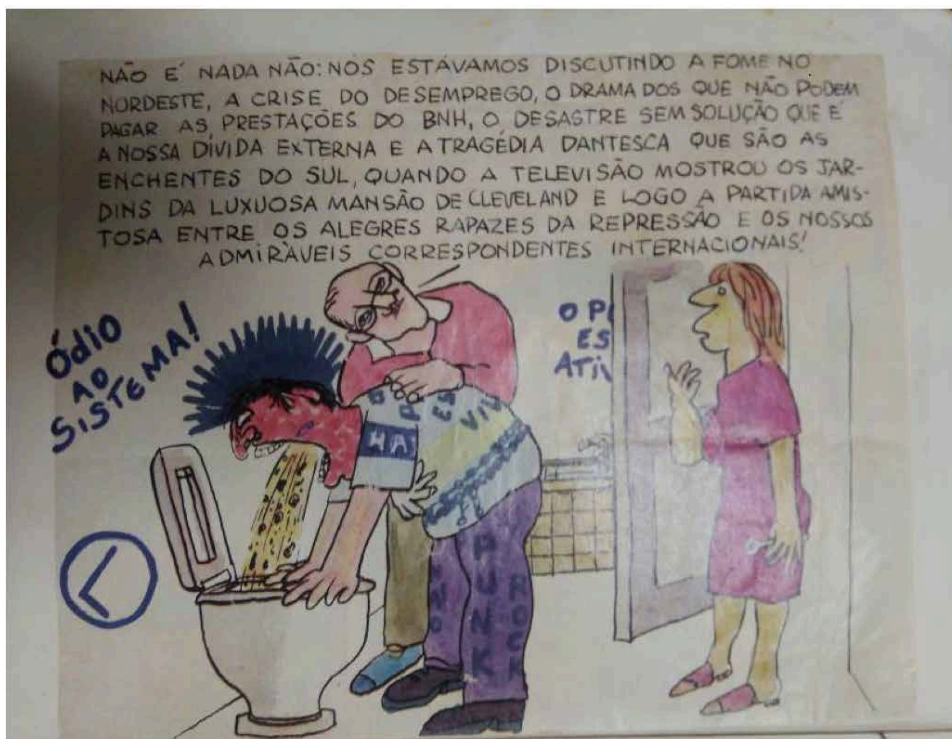 NÃO É NADA NÃO: NÓS ESTÁVAMOS DISCUTINDO A FOME NO
NORDESTE, A CRISE DO DESEMPREGO, O DRAMA DOS QUE NÃO PODEM
PAGAR AS PRESTAÇÕES DO BNH, O DESASTRE SEM SOLUÇÃO QUE É
A NOSSA DÍVIDA EXTERNA E A TRAGÉDIA DANTESCA QUE SÃO AS
ENCHENTES DO SUL, QUANDO A TELEVISÃO MOSTROU OS JAR-
DINS DA LUXUOSA MANSÃO DE CLEVELAND E LOGO A PARTIDA AMIS-
TOSA ENTRE OS ALEGRES RAPAZES DA REPRESSÃO E OS NOSSOS
ADMIRÁVEIS CORRESPONDENTES INTERNACIONAIS!
ÓDIO
AO
SISTEMA!
O P
ES
ATIV
HA
PUNK
ROCK